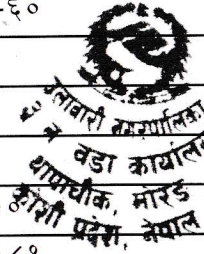 -६०
उर्लाबारी नगरपालिका
९ नं वडा कार्यालय
थापाचौक, मोरङ
कोशी प्रदेश, नेपाल